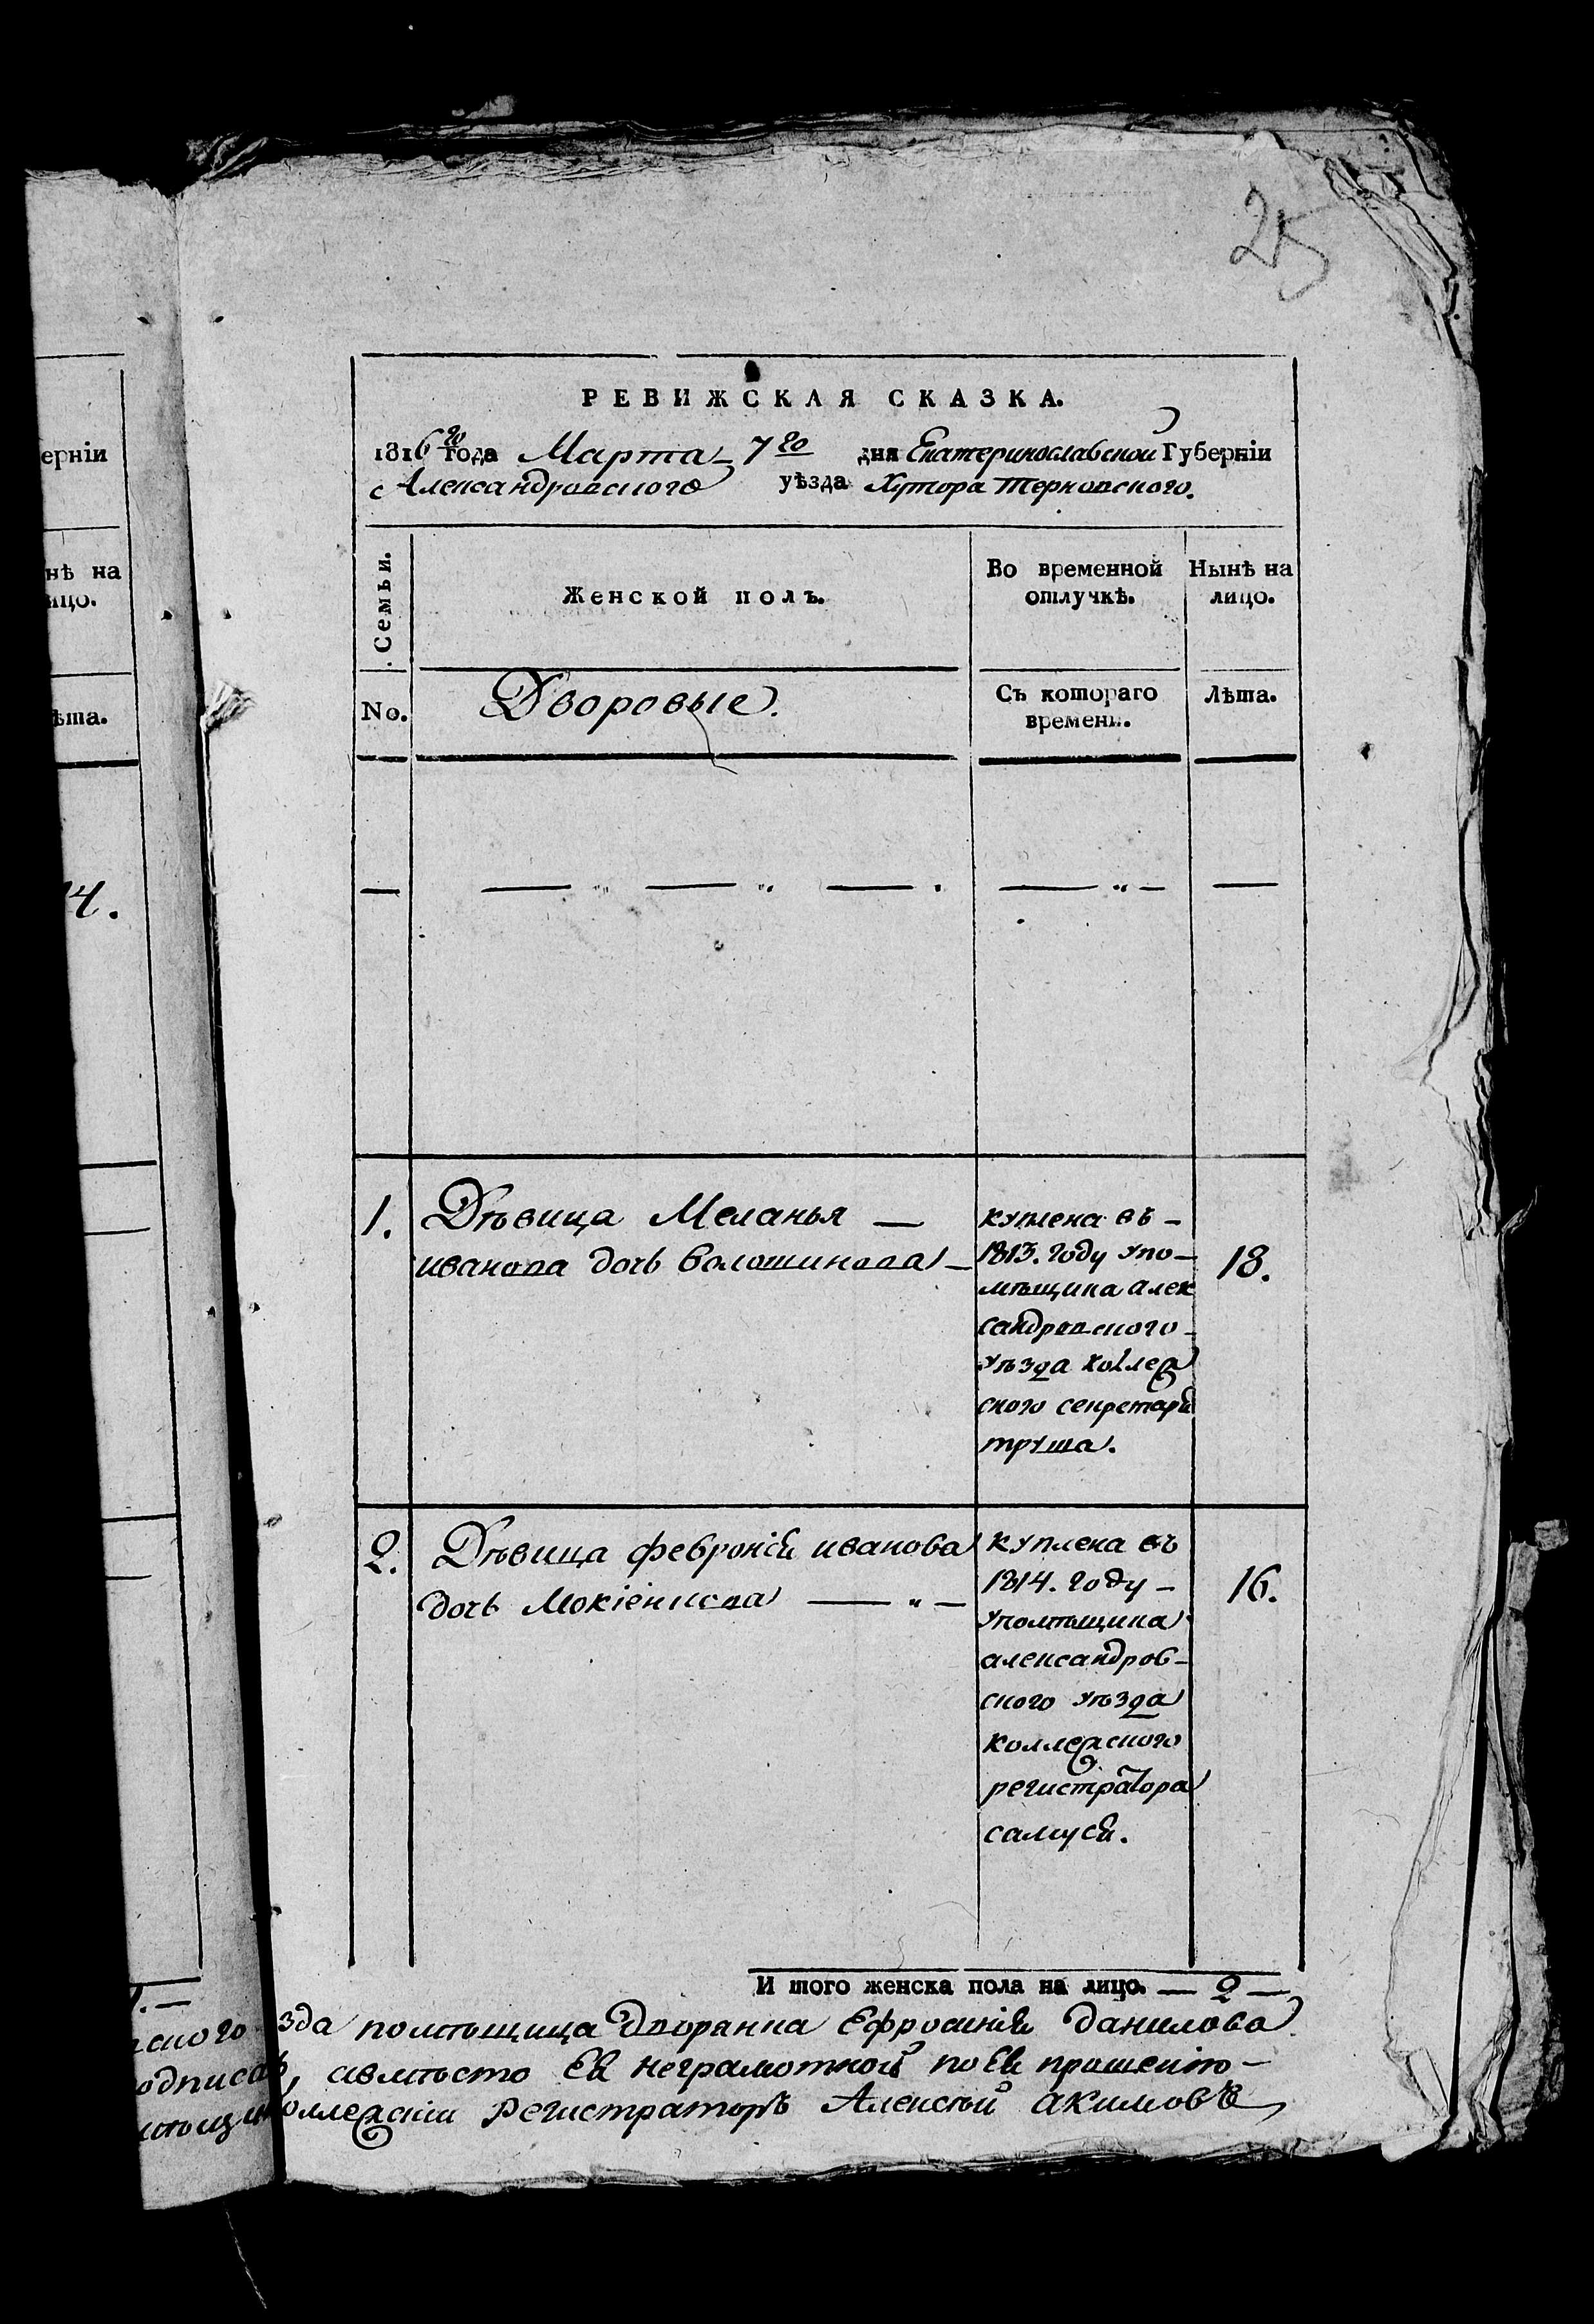 25
РЕВИЖСКАЯ СКАЗКА.
1816го года Марта 7го дня Екатеринославской Губернїи
Александровского уѣзда Хутора Терновского.
Семьи.
Женской полъ.
Во временной отлучкѣ.
Нынѣ на лицо.
No.
Дворовые.
Съ котораго времени.
Лѣта.
1.
Дѣвица Меланья —
иванова дочь Волошинова —
куплена въ –
1813. году упо–
мѣщика алек
сандровского –
уѣзда коллеж
ского секретаря
труша.
18.
2.
Дѣвица феврония иванова
дочь Мокіенкова — „ —
куплена въ
1814. году –
упомѣщика
александров–
ского уѣзда
коллежского
регистратора
самуся.
16.
И того женска пола на лицо. — 2 —
зда помѣщица Дворянка Ефросиния данилова
, авмѣсто Ея неграмотной по Ея прошенію –
оллежскіи Регистраторъ Алексѣй Акимовъ
ернїи
нѣ на
ицо.
ѣта.
14.
ского
одписав
мѣщи